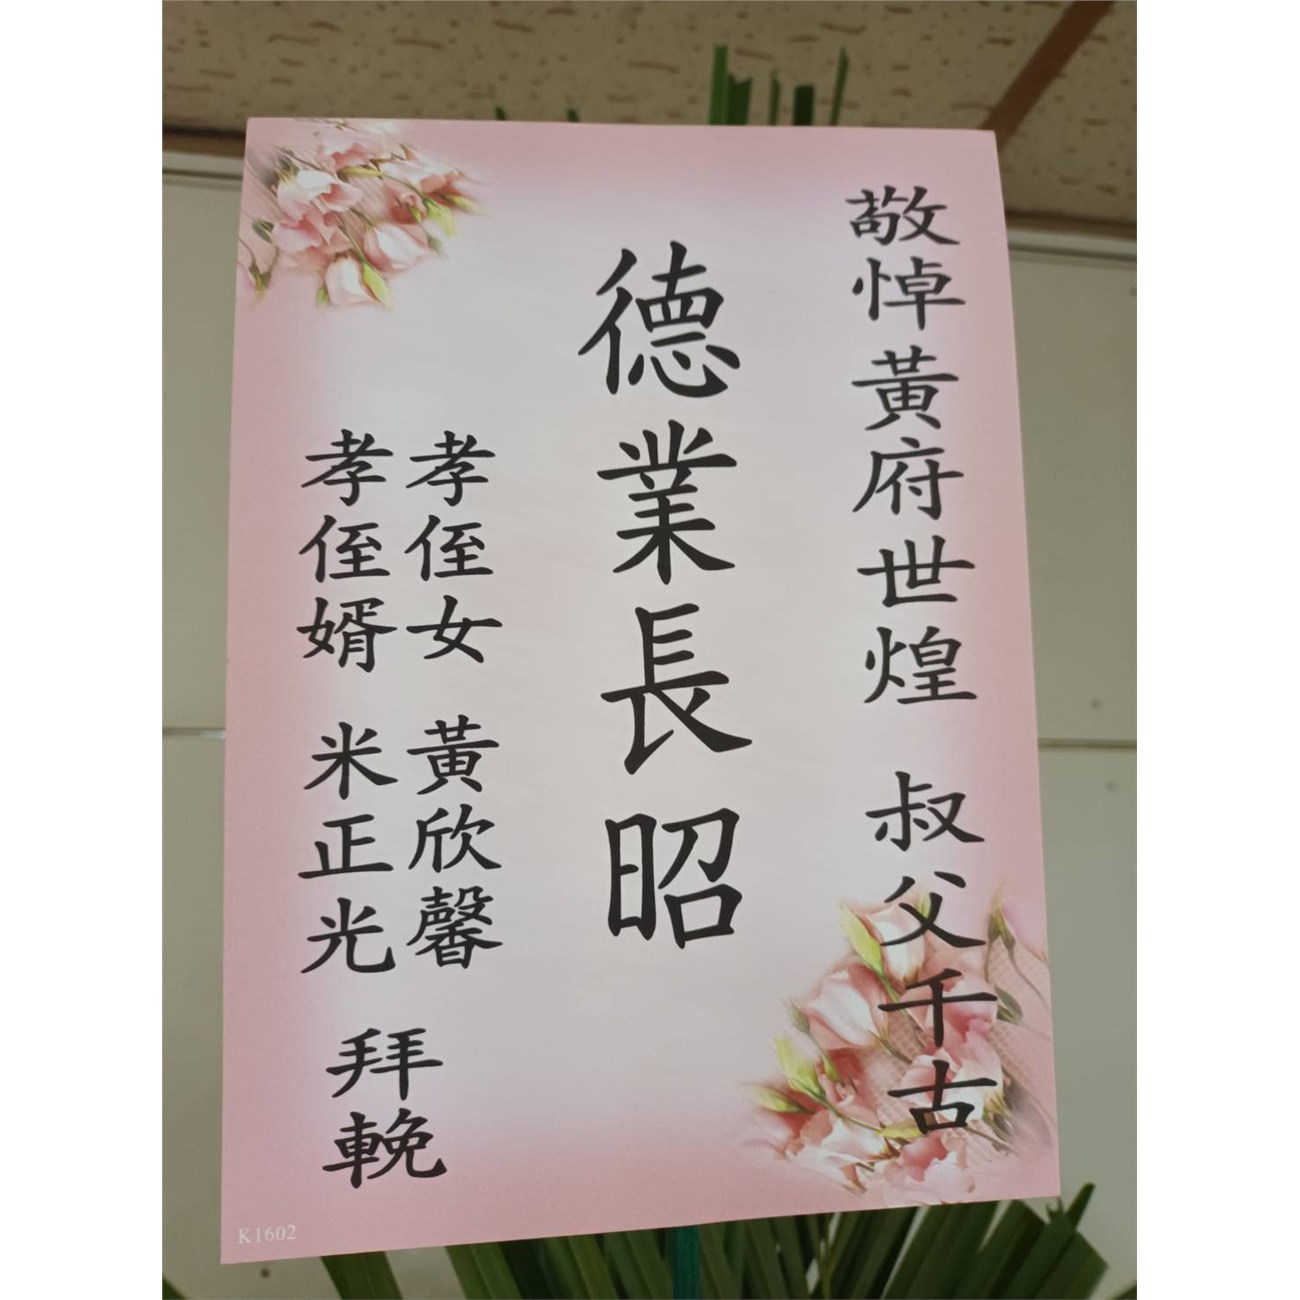 敬悼黃府世煌 叔父千古
德業長昭
孝侄女 黃欣馨
孝侄婿 米正光
拜輓
K1602